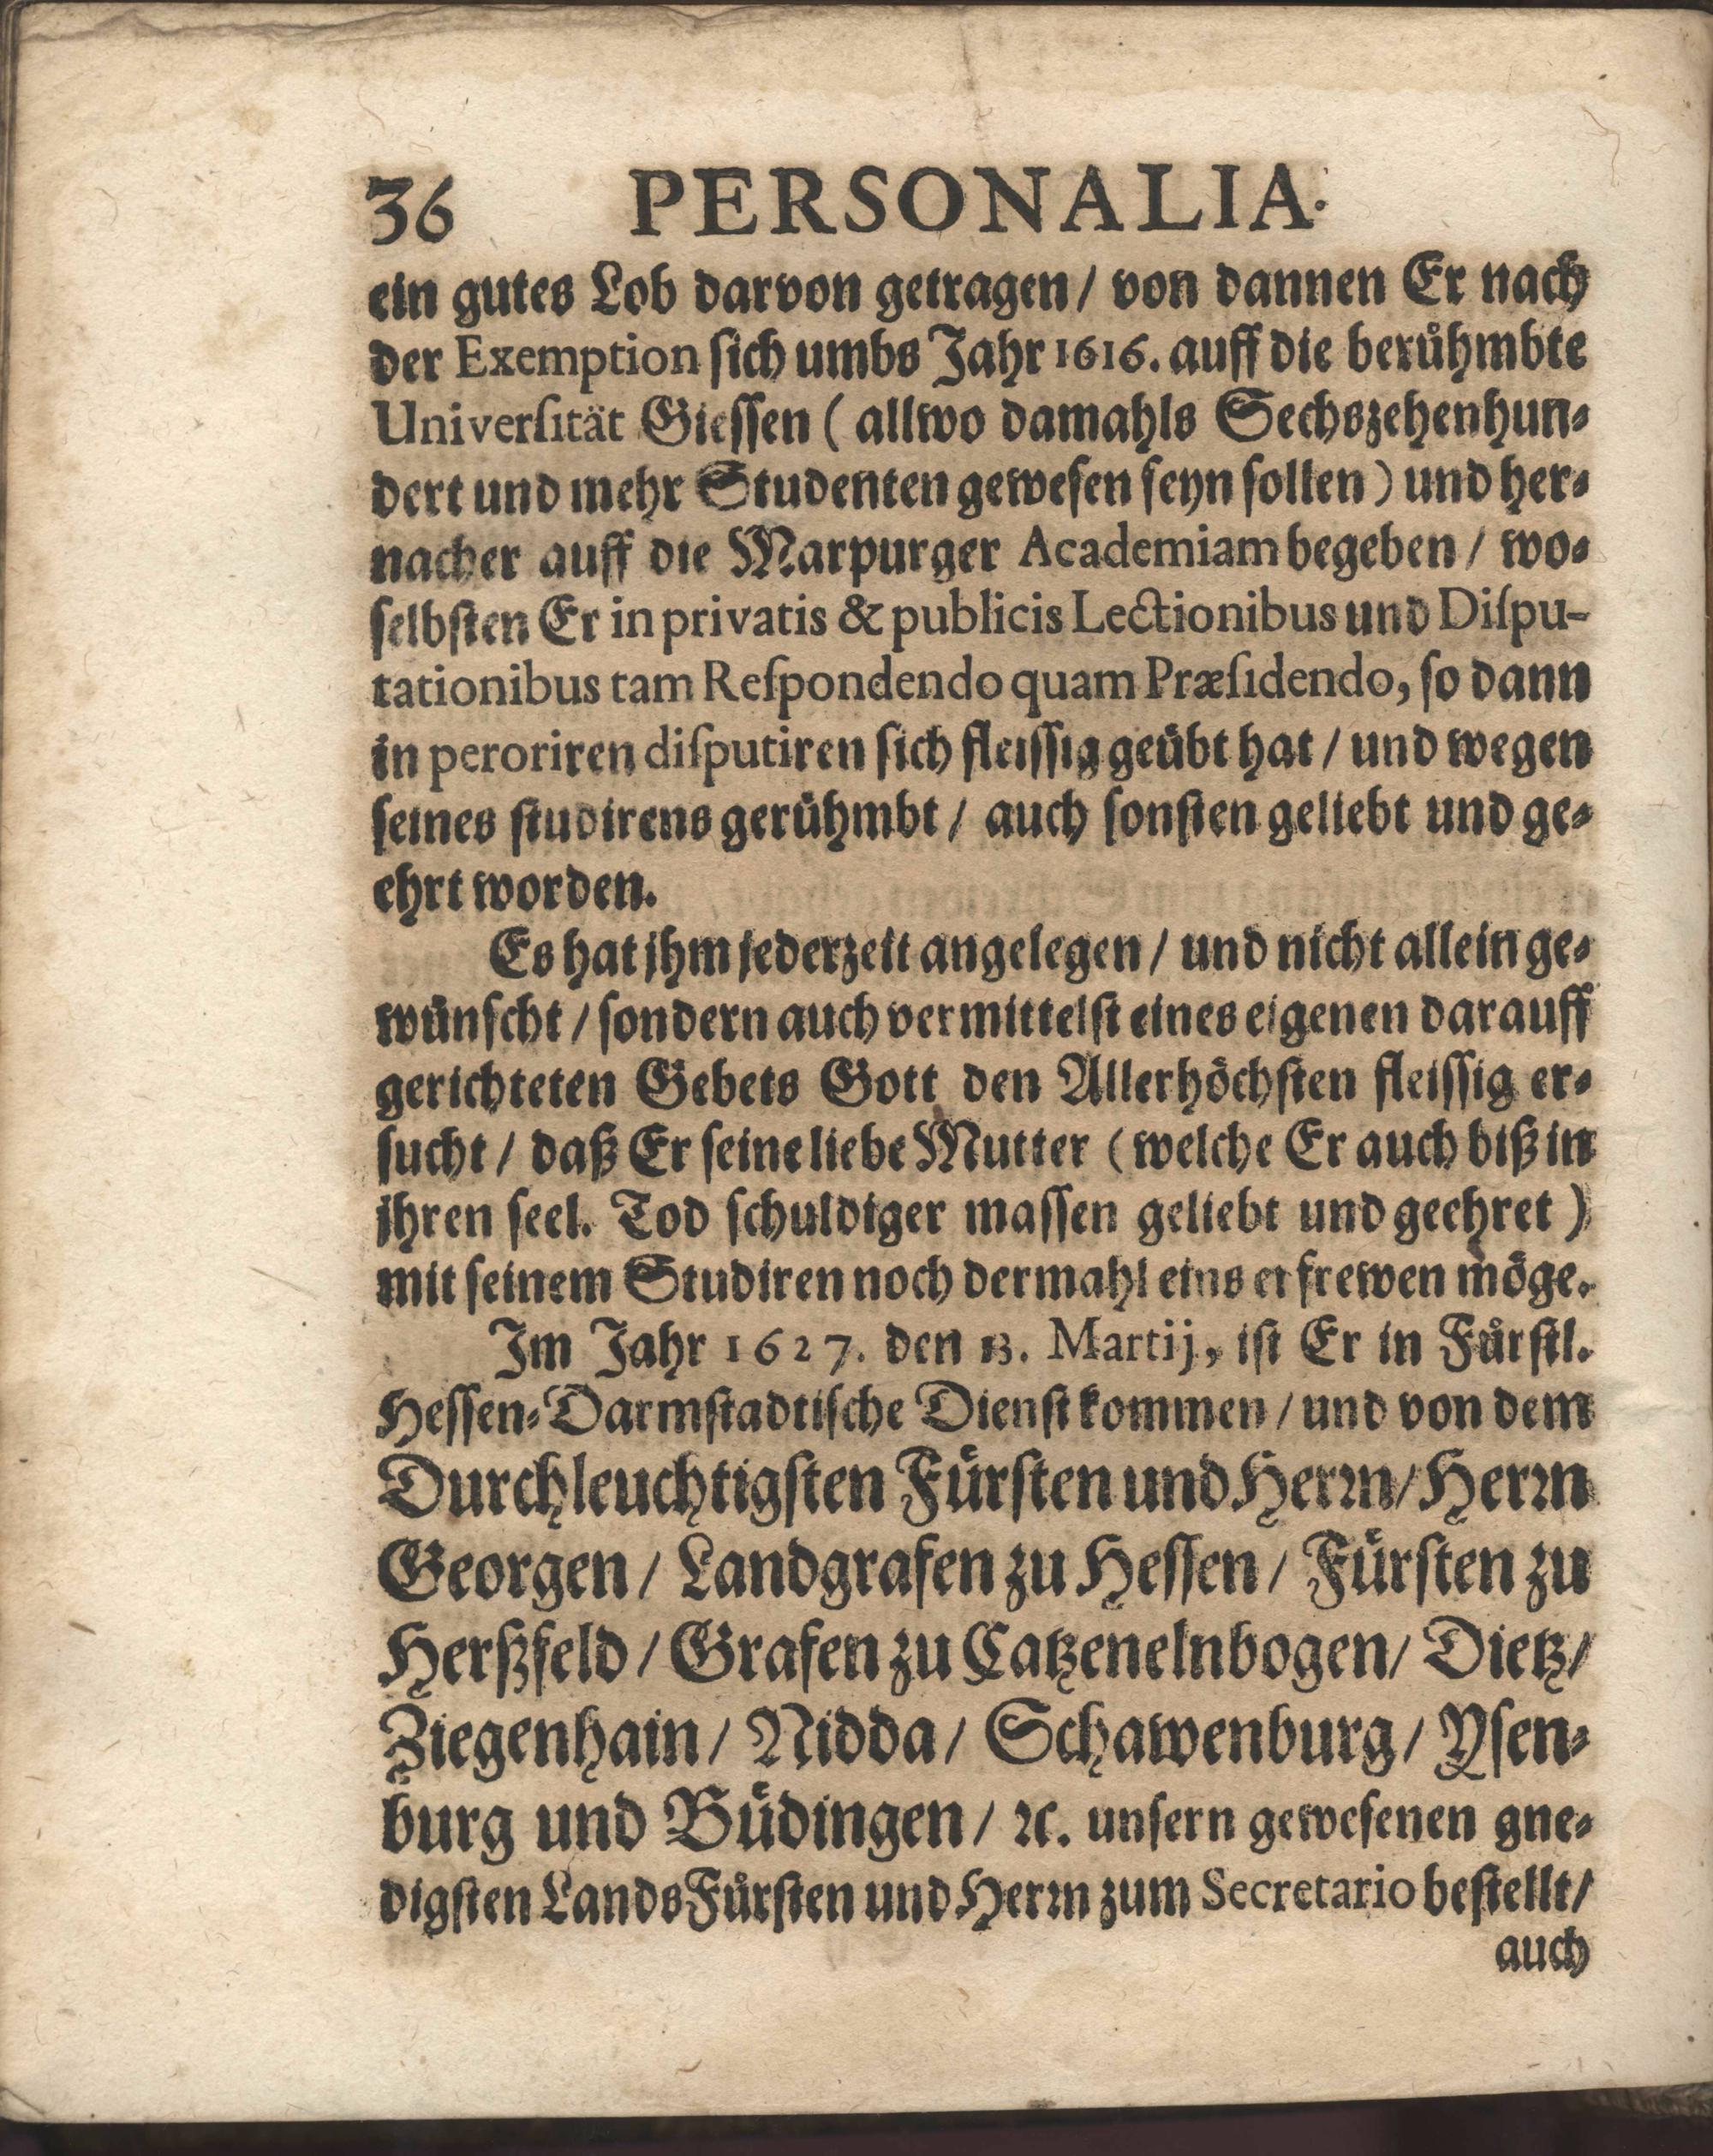 36 PERSONALIA.
ein gutes Lob darvon getragen / von dannen Er nach
der Exemption ſich umbs Jahr 1616. auff die berühmbte
Univerſität Gieſſen ( allwo damahls Sechszehenhun⸗
dert und mehr Studenten geweſen ſeyn ſollen ) und her⸗
nacher auff die Marpurger Academiam begeben / wo⸗
ſelbſten Er in privatis & publicis Lectionibus und Diſpu-
tationibus tam Reſpondendo quam Præſidendo, ſo dann
in peroriren diſputiren ſich fleiſſig geübt hat / und wegen
ſeines ſtudirens gerühmbt / auch ſonſten geliebt und ge⸗
ehrt worden.
Es hat jhm jederzeit angelegen / und nicht allein ge⸗
wünſcht / ſondern auch vermittelſt eines eigenen darauff
gerichteten Gebets Gott den Allerhöchſten fleiſſig er⸗
ſucht / daß Er ſeine liebe Mutter ( welche Er auch biß in
jhren ſeel. Tod ſchuldiger maſſen geliebt und geehret )
mit ſeinem Studiren noch dermahl eins erfrewen möge.
Im Jahr 1627. den 13. Martij, iſt Er in Fürſtl.
Heſſen⸗Darmſtadtiſche Dienſt kommen / und von dem
Durchleuchtigſten Fürſten und Herꝛn / Herꝛn
Georgen / Landgrafen zu Heſſen / Fürſten zu
Herßfeld / Grafen zu Catzenelnbogen / Dietz /
Ziegenhain / Nidda / Schawenburg / Yſen⸗
burg und Büdingen / ꝛc. unſern geweſenen gne⸗
digſten LandsFürſten und Herꝛn zum Secretario beſtellt /
auch